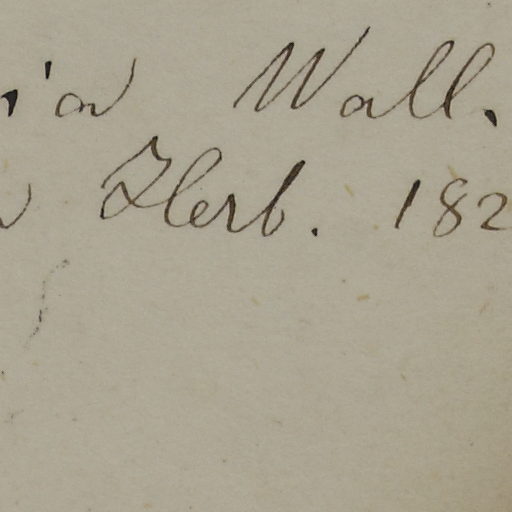 ia Wall.
Herb. 182